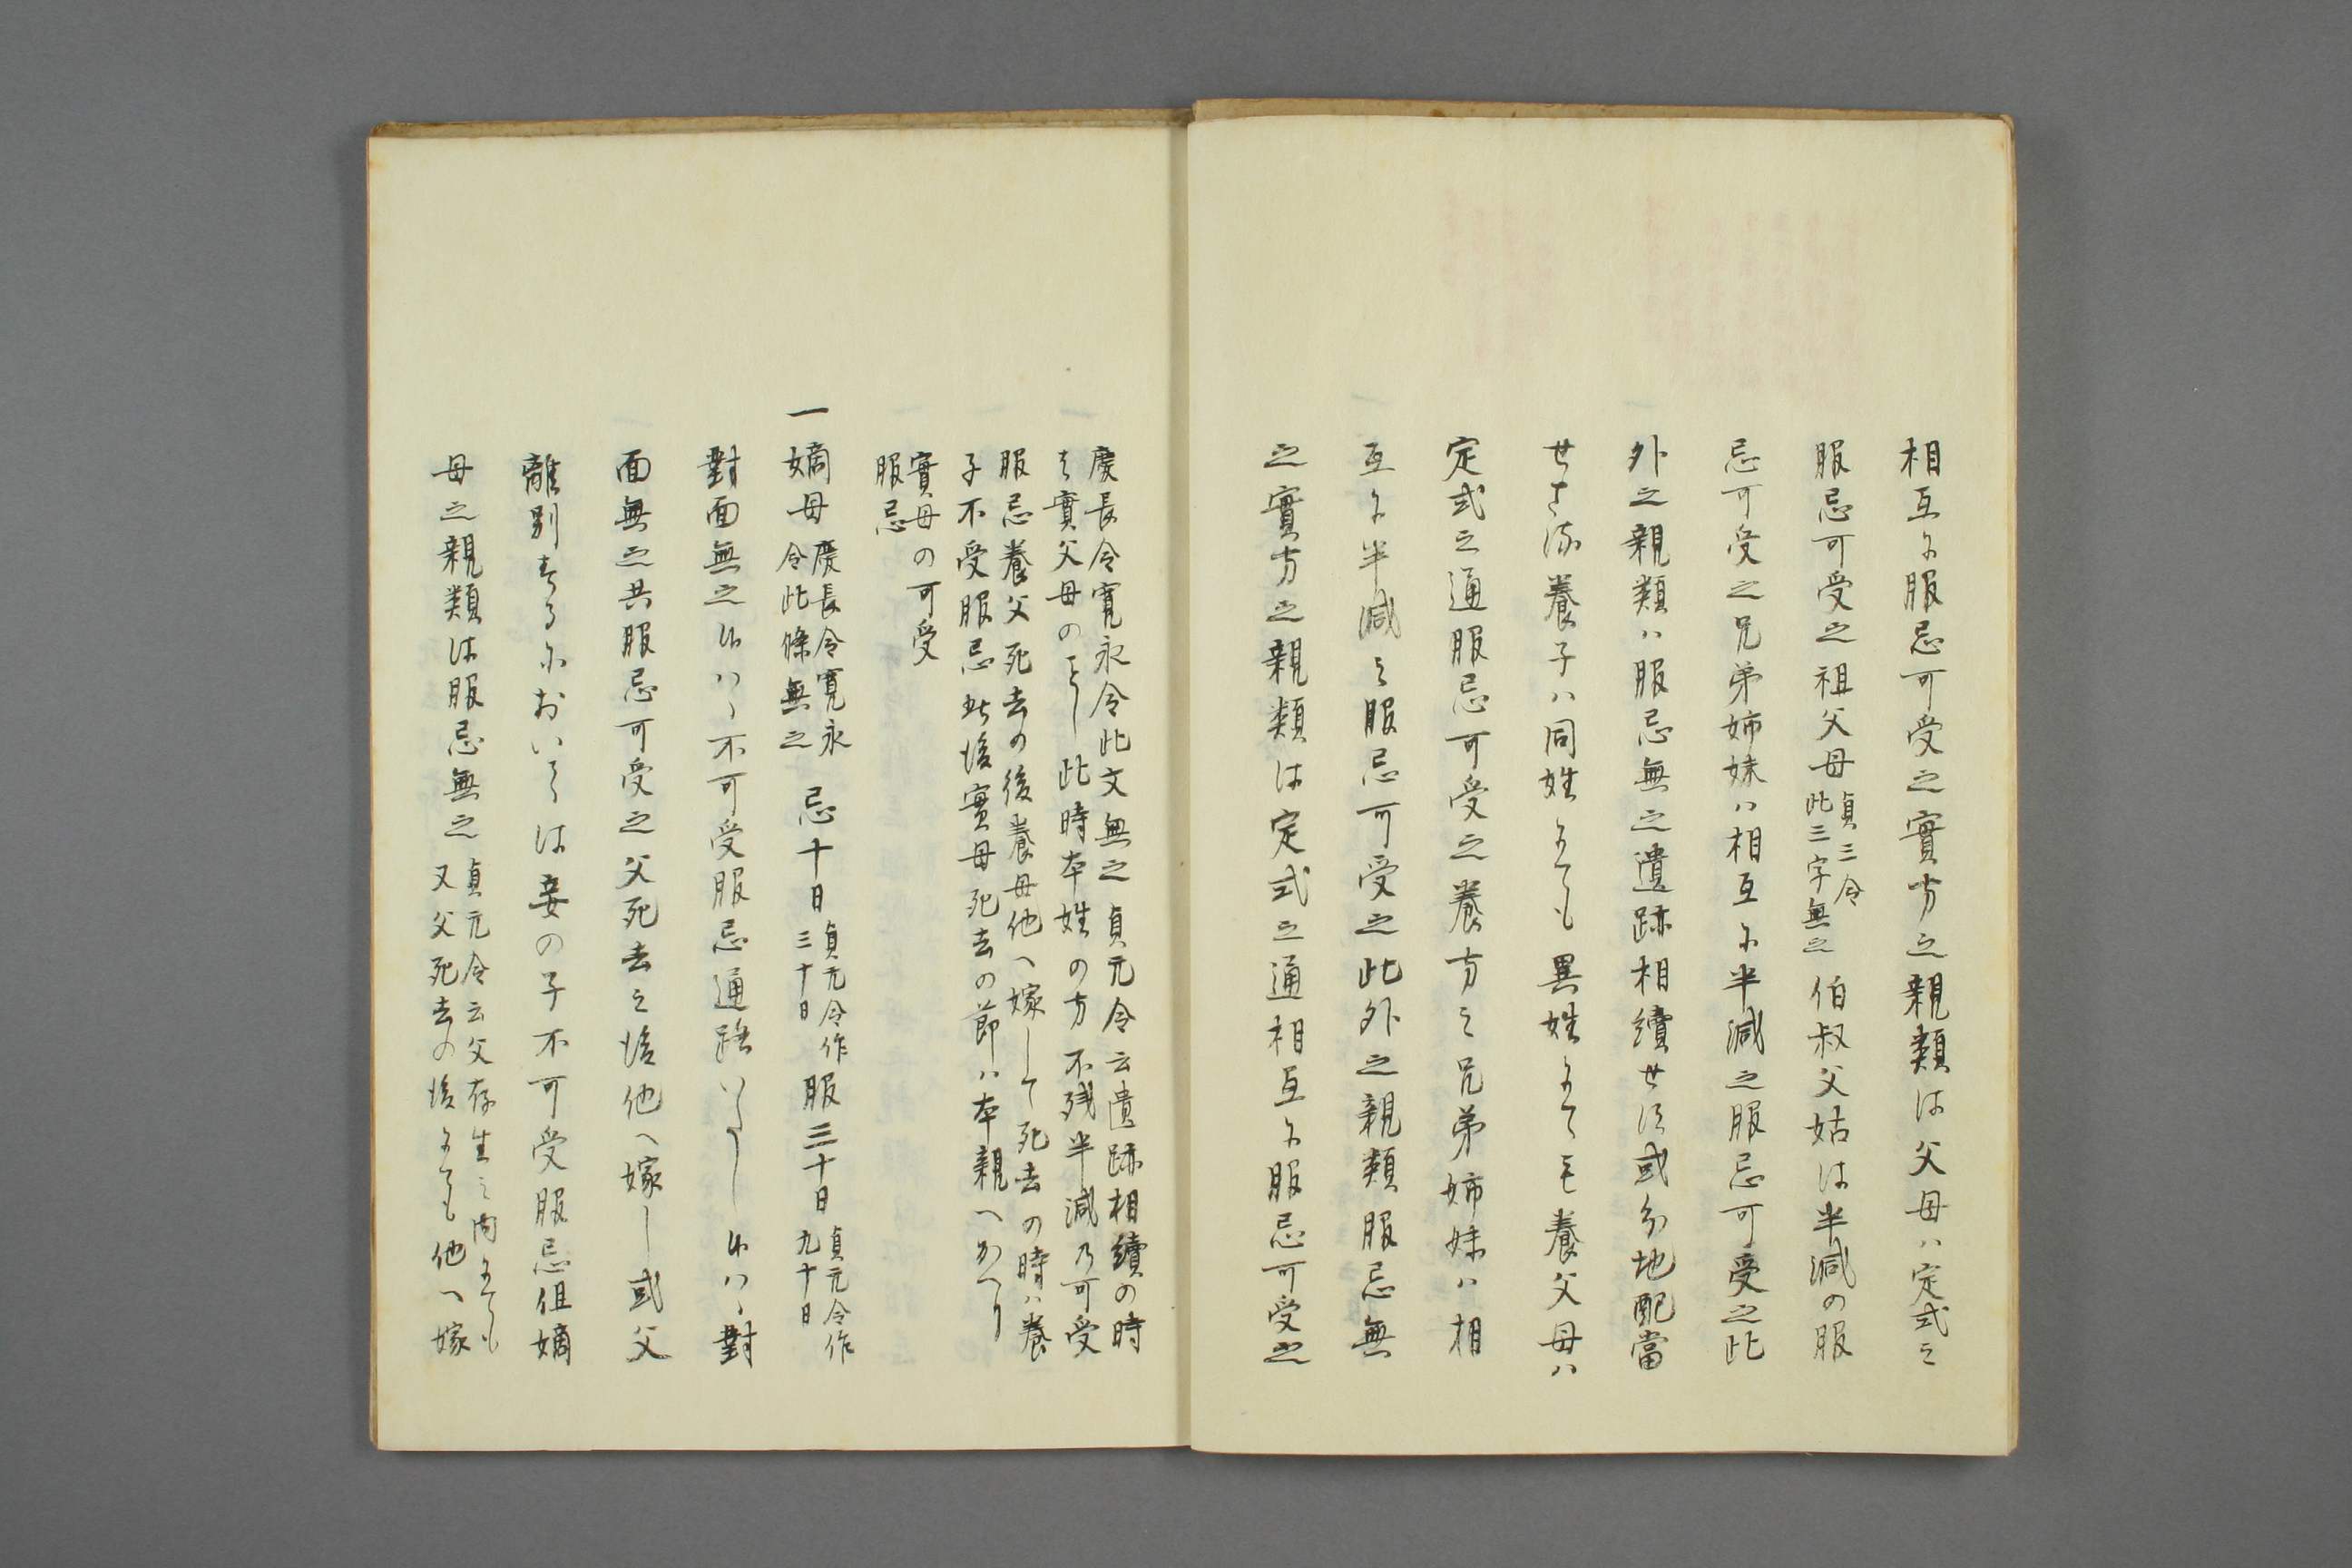 相互ニ服忌可受之實方之親類は父母ハ定式之
服忌可受之祖父母
貞三令
此三字無之
伯叔父姑は半減の服
忌可受之兄弟姉妹ハ相互ニ半減之服忌可受之此
外之親類ハ服忌無之遺跡相續せす或分地配當
せさる養子ハ同姓にても異姓にても養父母ハ
定式之通服忌可受之養方之兄弟姉妹ハ相
互ニ半減之服忌可受之此外之親類服忌無
之實方之親類は定式之通相互ニ服忌可受之
慶長令寛永令此文無之 貞元令云遺跡相續の時
は實父母のことし此時本姓の方不残半減乃可受
服忌養父死去の後養母他へ嫁して死去の時ハ養
子不受服忌此後實母死去の節ハ本親へかへり
實母の可受
服忌
一嫡母
慶長令寛永
令此條無之
忌十日
貞元令作
三十日
服三十日
貞元令作
九十日
對面無之候ハヽ不可受服忌通路いたし候ハヽ對
面無之共服忌可受之父死去之後他へ嫁し或父
離別するにおいては妾の子不可受服忌但嫡
母之親類は服忌無之
貞元令云父存生之内にても
又父死去の後にても他へ嫁